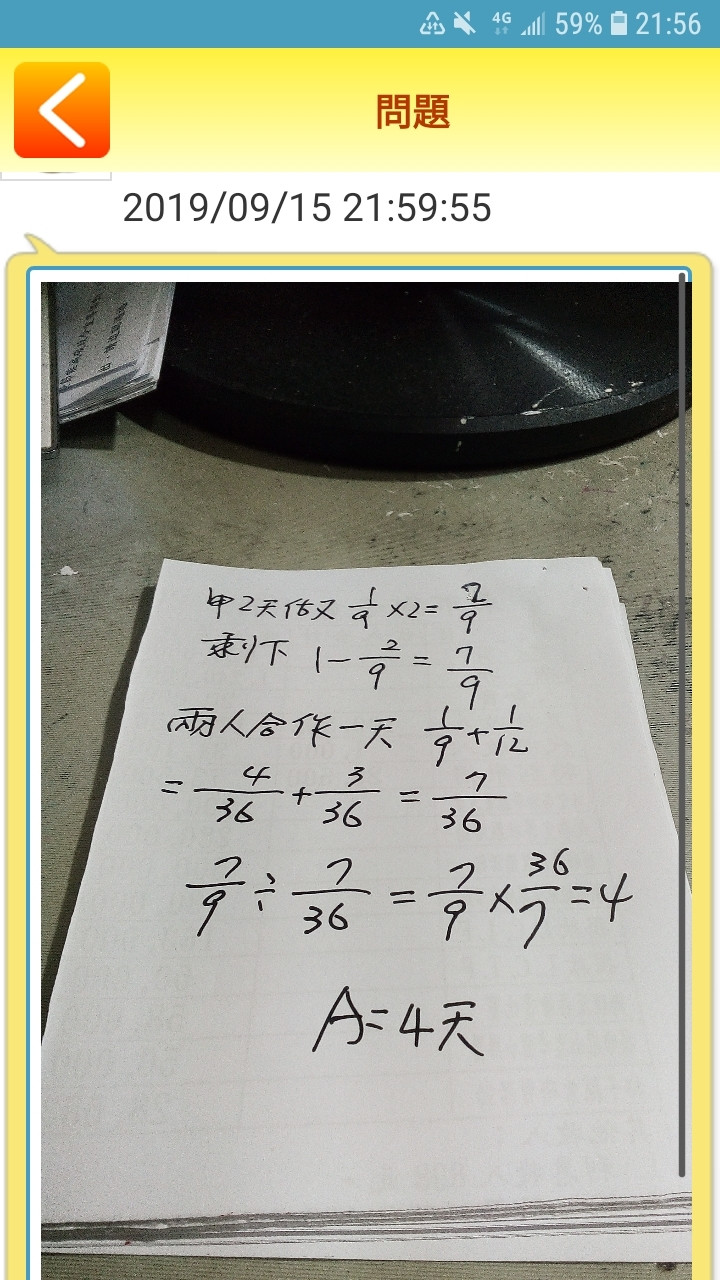 4G 59% 21:56
問題
2019/09/15 21:59:55
甲2天佔又 1/9 ×2= 2/9
剩下 1 - 2/9 = 7/9
兩人合作一天 1/9 + 1/12
= 4/36 + 3/36 = 7/36
7/9 ÷ 7/36 = 7/9 × 36/7 = 4
A=4天